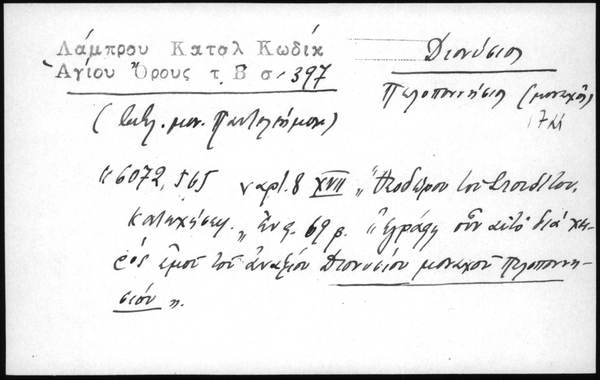 Λάμπρου Καταλ Κωδίκ
Ἁγίου Ὄρους τ. Β σ. 397
Διονύσιος
Πελοποννήσιος (μοναχός)
17
(Βιβλ. μον. Παντελεήμονος)
"6072, 565 χαρτ. 8 XVII "Θεοδώρου τοῦ Στουδίτου,
Κατηχήσεις. 69 β. "Ἐγράφη σὺν αὐτῷ διὰ χει-
ρός ἐμοῦ τοῦ ἀναξίου Διονυσίου μοναχοῦ Πελοποννη-
σίου".